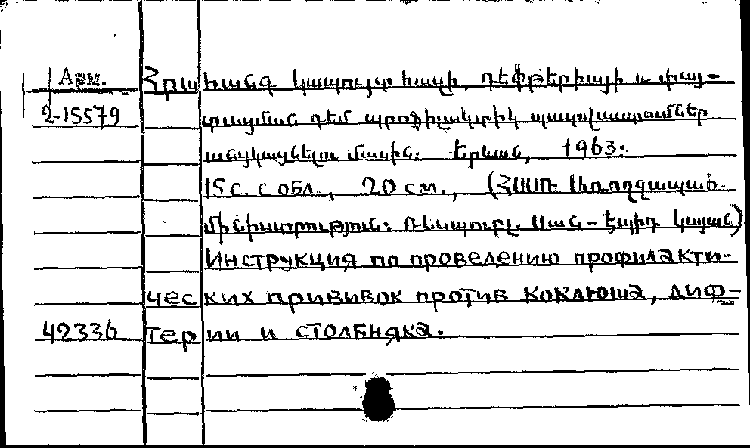 Арм.
Հրահանգ կապույտ հազի, դեֆթերիայի և փայ-
2-15579
տացման դեմ պրոֆիլակտիկ պատվաստումներ
անցկացնելու մասին: Երևան, 1963:
15 с. с обл., 20 см., (ՀՍՍՌ Առողջապահ.
մինիստրություն: Ռեսպուբլ. Սան-Էպիդ կայան)
Инструкция по проведению профилакти-
ческих прививок против коклюша, диф-
42336 терии и столбняка.